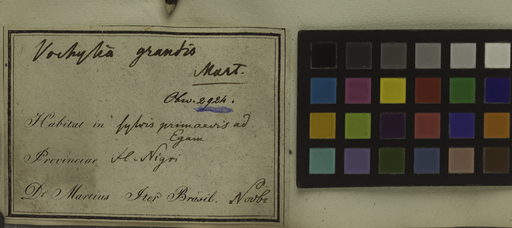 Vochysia grandis
Mart.
Obs. 2924.
Habitat in sylvis primaevis ad
Egam
Provinciae fl. Nigri
Dr Martius Iter Brasil. Novbr